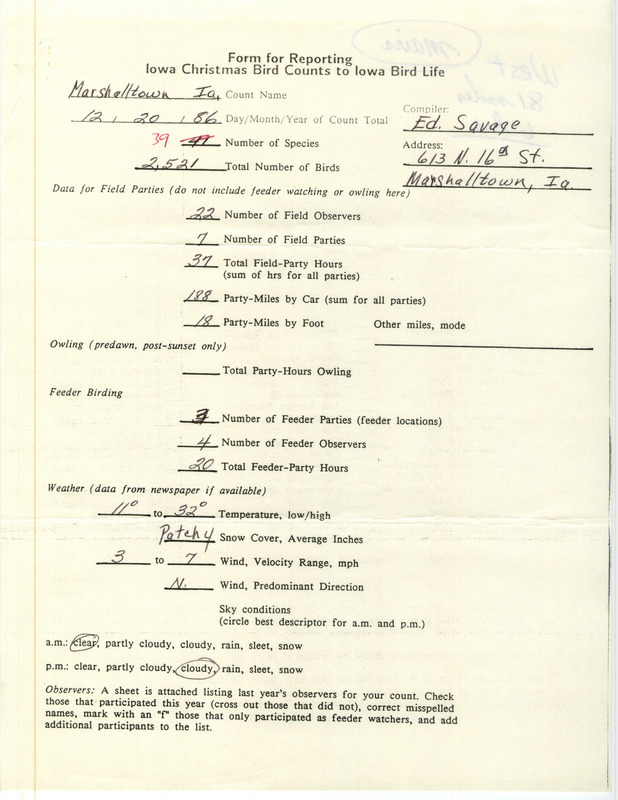 Form for Reporting
Iowa Christmas Bird Counts to Iowa Bird Life
Marshalltown Ia. Count Name
12, 20, 86 Day/Month/Year of Count Total
Compiler:
Ed. Savage
39 Number of Species
Address:
613 N. 16th St.
2,521 Total Number of Birds
Marshalltown, Ia.
Data for Field Parties (do not include feeder watching or owling here)
22 Number of Field Observers
7 Number of Field Parties
37 Total Field-Party Hours
(sum of hrs for all parties)
188 Party-Miles by Car (sum for all parties)
18 Party-Miles by Foot Other miles, mode
Owling (predawn, post-sunset only)
Total Party-Hours Owling
Feeder Birding
3 Number of Feeder Parties (feeder locations)
4 Number of Feeder Observers
20 Total Feeder-Party Hours
Weather (data from newspaper if available)
11° to 32° Temperature, low/high
Patchy Snow Cover, Average Inches
3 to 7 Wind, Velocity Range, mph
N. Wind, Predominant Direction
Sky conditions
(circle best descriptor for a.m. and p.m.)
a.m.: clear, partly cloudy, cloudy, rain, sleet, snow
p.m.: clear, partly cloudy, cloudy, rain, sleet, snow
Observers: A sheet is attached listing last year's observers for your count. Check
those that participated this year (cross out those that did not), correct misspelled
names, mark with an "f" those that only participated as feeder watchers, and add
additional participants to the list.